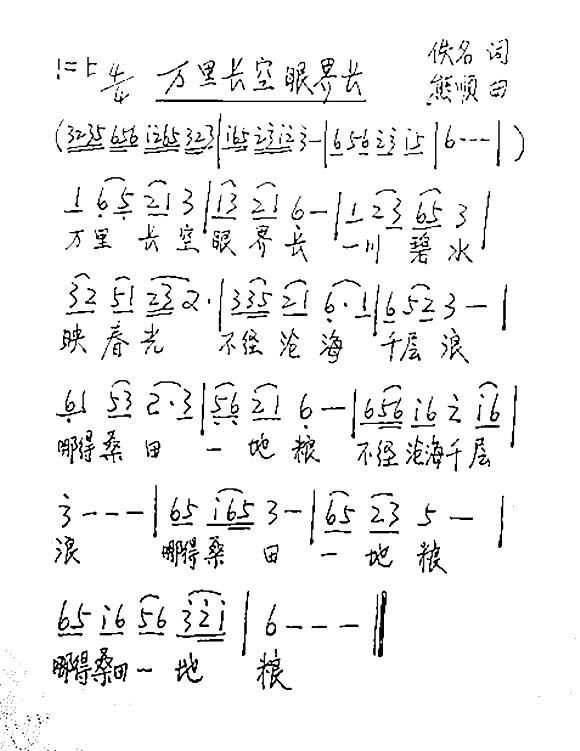 1=E 4/4 万里长空眼界长 佚名 词
熊顺 曲
(3235 656 i265 323|i65 23i2 3-|656 23 i5|6---|)
1 65 21 3|13 21 6-|1 23 65 3|
万里 长空 眼界长 一川 碧水
32 51 23 2·|335 21 6·1|6 52 3-|
映春光 不经沧海 千层浪
61 53 2·3|56 21 6-|656 i6 2 i6|
哪得桑田 一地粮 不经沧海千层
3---|65 i65 3-|65 23 5-|
浪 哪得桑田 一地粮
65 i6 56 32i|6---‖
哪得桑田一地 粮